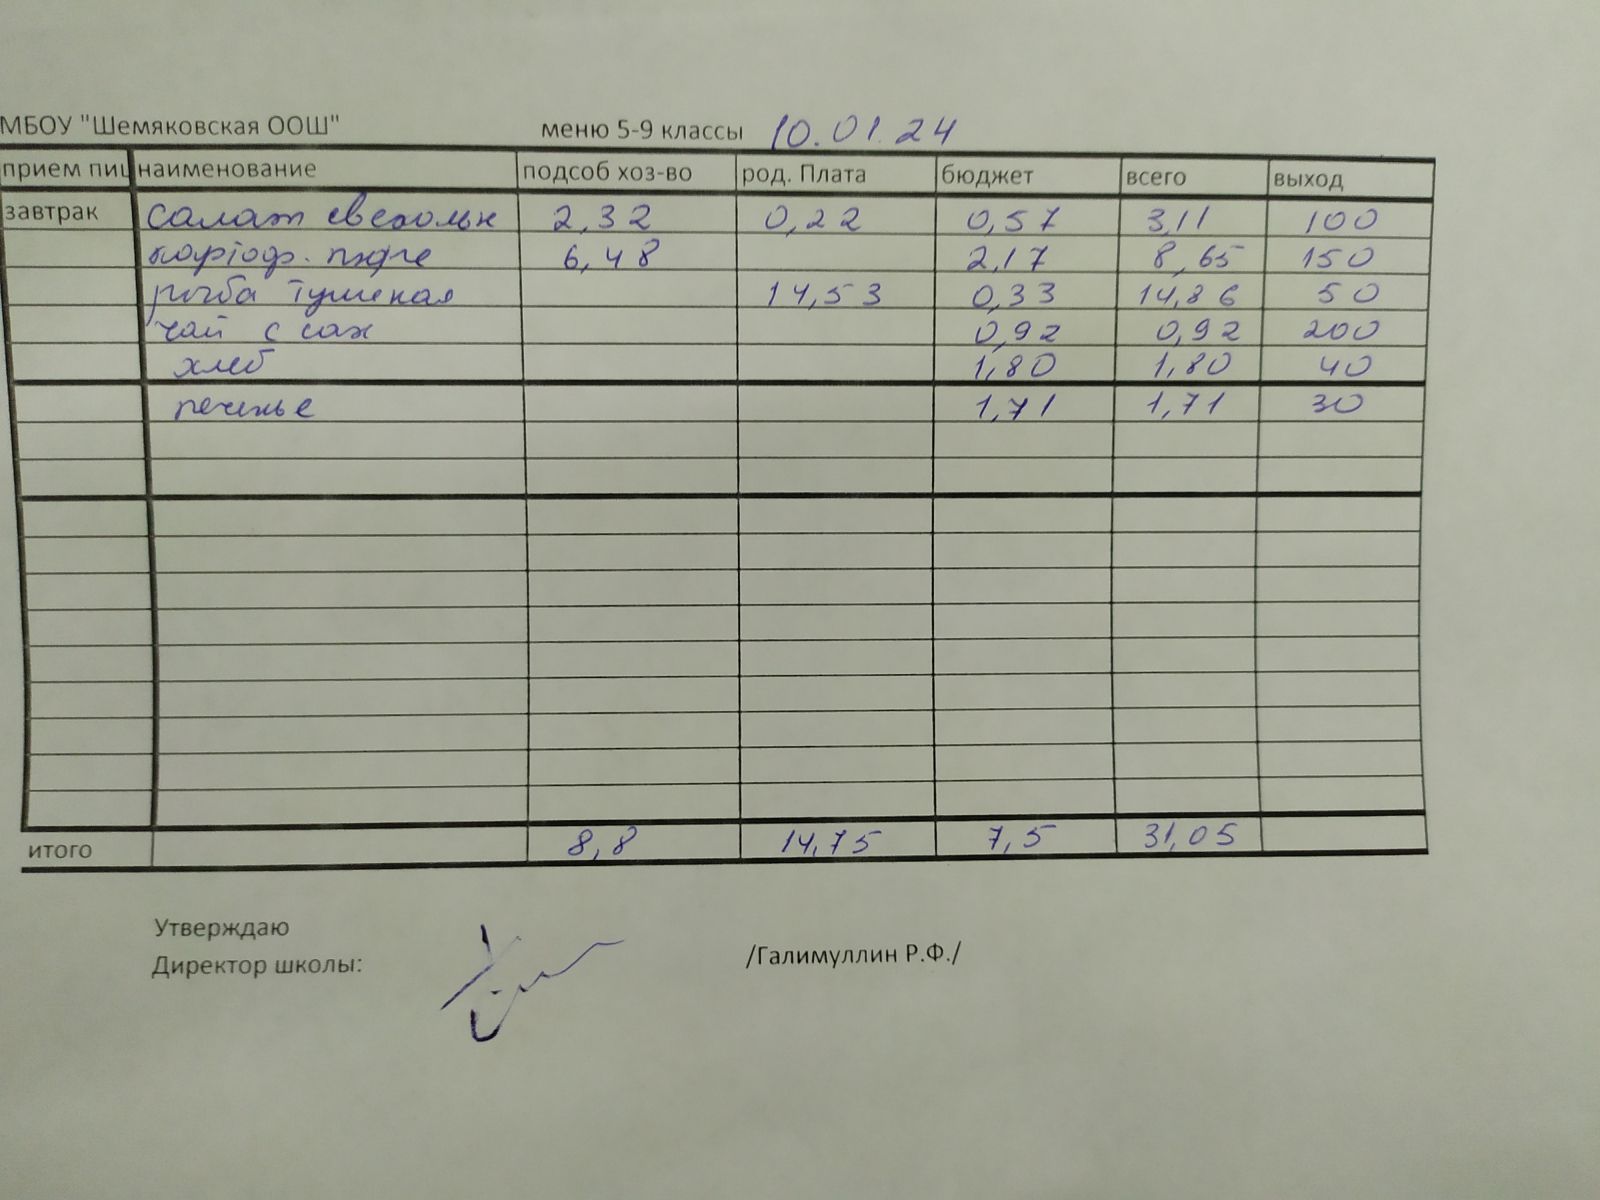 МБОУ "Шемяковская ООШ" меню 5-9 классы 10.01.24
прием пищ наименование подсоб хоз-во род. Плата бюджет всего выход
завтрак салат свекольн 2,32 0,22 0,57 3,11 100
картоф. пюре 6,48 2,17 8,65 150
рыба тушеная 14,53 0,33 14,86 50
чай с сах 0,92 0,92 200
хлеб 1,80 1,80 40
печенье 1,71 1,71 30
итого 8,8 14,75 7,5 31,05
Утверждаю
Директор школы: /Галимуллин Р.Ф./